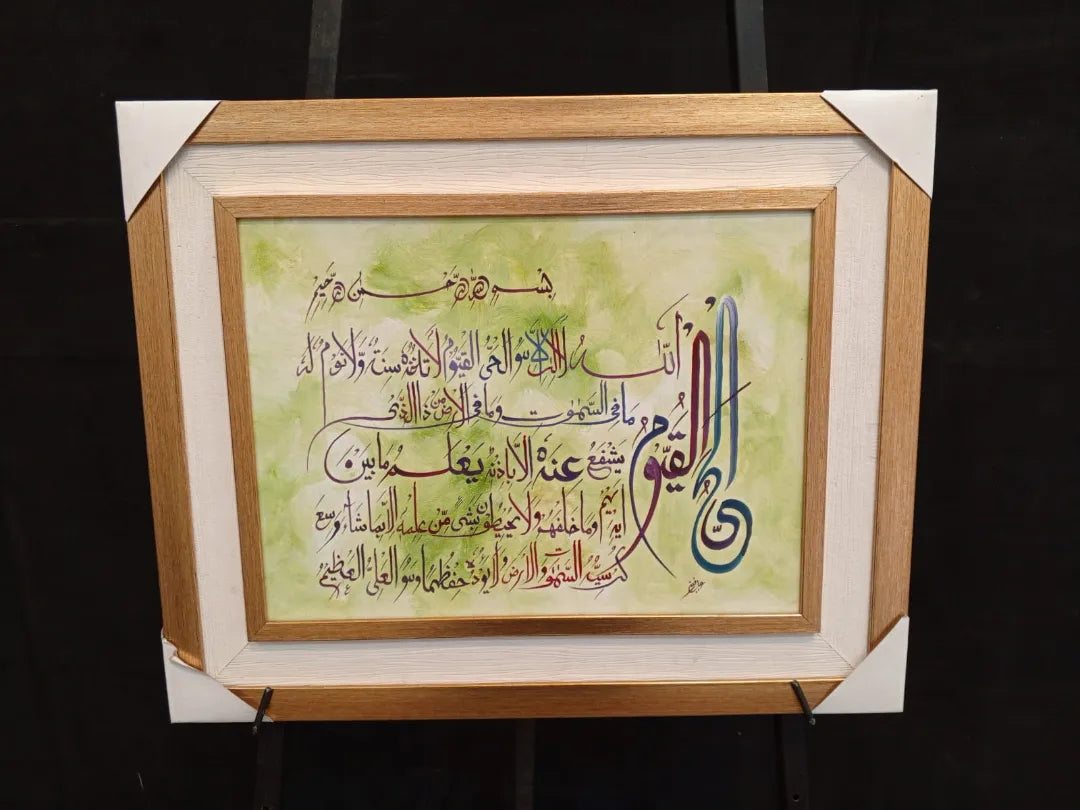 بسم الله الرحمن الرحيم
الله لا إله إلا هو الحي القيوم لا تأخذه سنة ولا نوم له
ما في السموت وما في الارض من ذا الذي
يشفع عنده الا باذنه يعلم ما بين
ايديهم وما خلفهم ولا يحيطون بشيء من علمه الا بما شاء وسع
كرسيه السموت والارض ولا يؤده حفظهما وهو العلي العظيم
الحي
القيوم